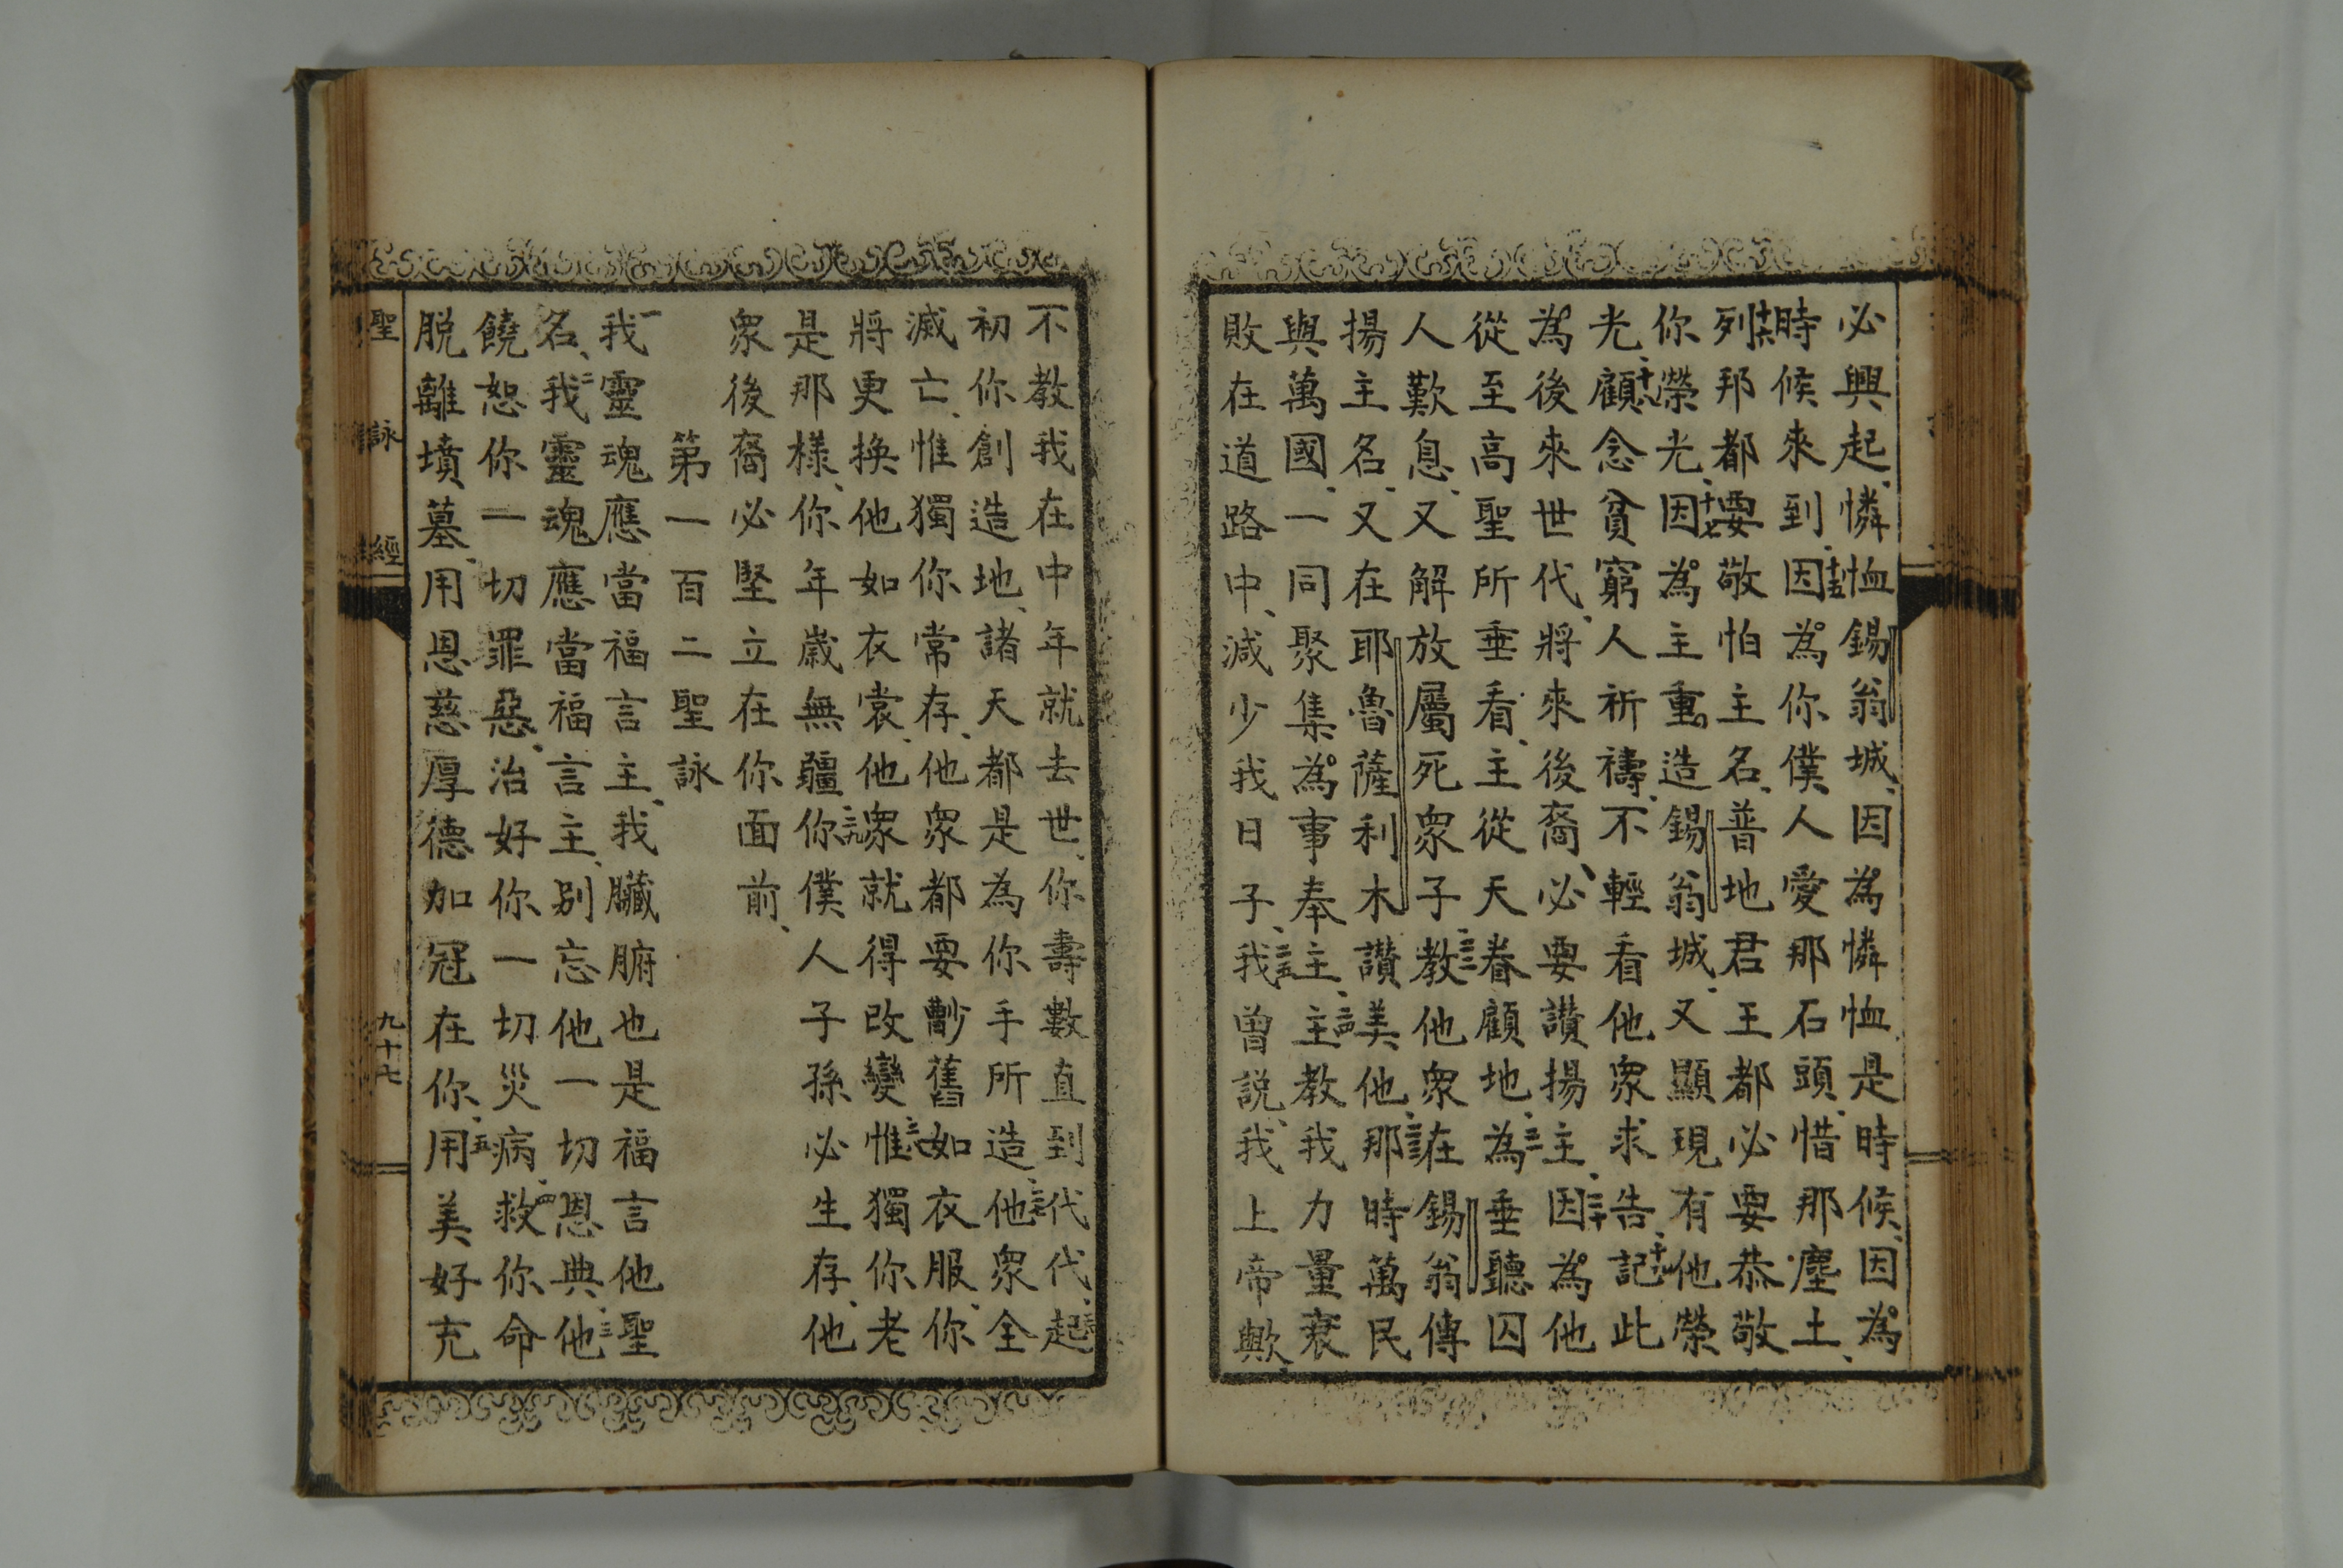 必興起、憐恤錫翁城、因為憐恤是時候、因為
時候來到、十五因為你僕人愛那石頭、惜那塵土、
十六列邦都要敬怕主名、普地君王都必要恭敬
你榮光、十七因為主重造錫翁城、又顯現有他榮
光、十八顧念貧窮人祈禱、不輕看他眾求告、十九記此
為後來世代、將來後裔、必要讚揚主、二十因為他
從至高聖所垂看、主從天眷顧地、二一為垂聽囚
人歎息、又解放屬死眾子、二二教他眾在錫翁傳
揚主名、又在耶魯薩利木讚美他、二三那時萬民
與萬國、一同聚集為事奉主、二四主教我力量衰
敗在道路中、減少我日子、二五我曾說、我上帝歟、
不教我在中年就去世、你壽數直到代代、二六起
初你創造地、諸天都是為你手所造、二七他眾全
滅亡、惟獨你常存、他眾都要勦舊如衣服、你
將更換他如衣裳、他眾就得改變、二八惟獨你老
是那樣、你年歲無疆、二九你僕人子孫必生存、他
眾後裔必堅立在你面前、
第一百二聖詠
一我靈魂應當福言主、我臟腑也是福言他聖
名、二我靈魂應當福言主、別忘他一切恩典、三他
饒恕你一切罪惡、治好你一切災病、四救你命
脫離墳墓、用恩慈厚德加冠在你、五用美好充
聖詠經
九十七